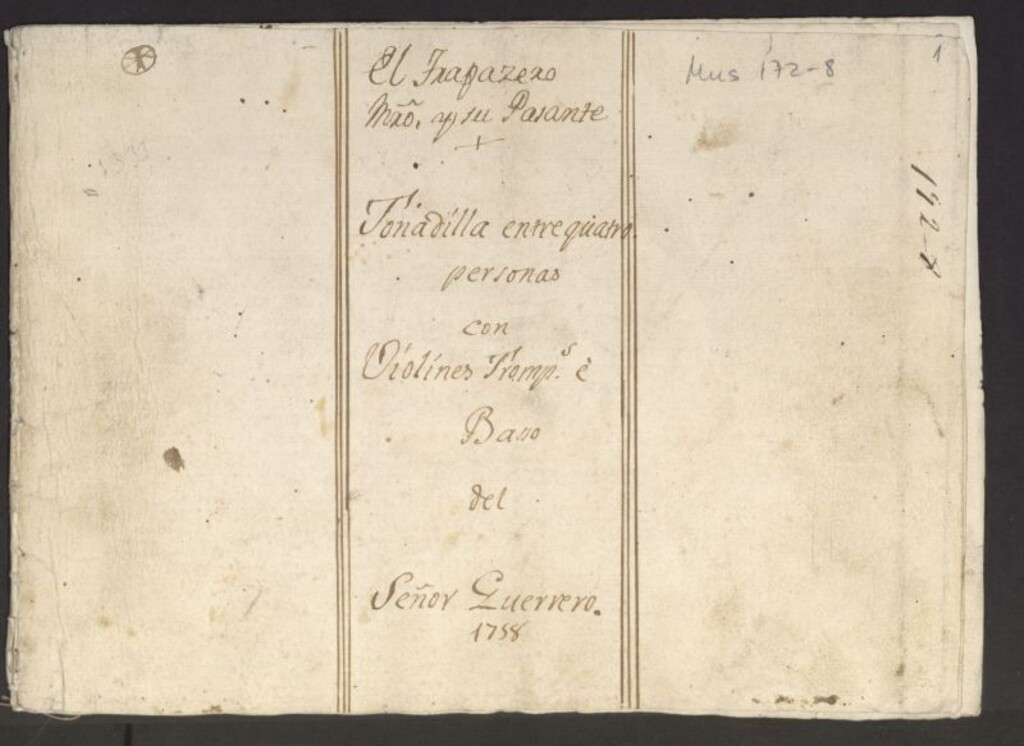 El Trapazero
Mrõ, y su Pasante
Tonadilla entre quatro
personas
con
Violines Tromp.s è
Baxo
del
Señor Guerrero.
1758
Mus 172-8
1